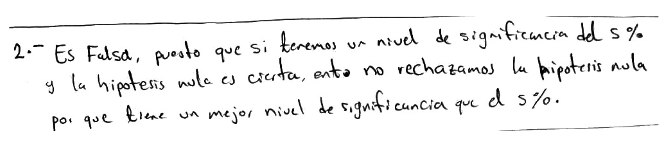 2.- Es Falsa, puesto que si tenemos un nivel de significancia del 5%
y la hipotesis nula es cierta, ento no rechazamos la hipotesis nula
por que tiene un mejor nivel de significancia que el 5%.